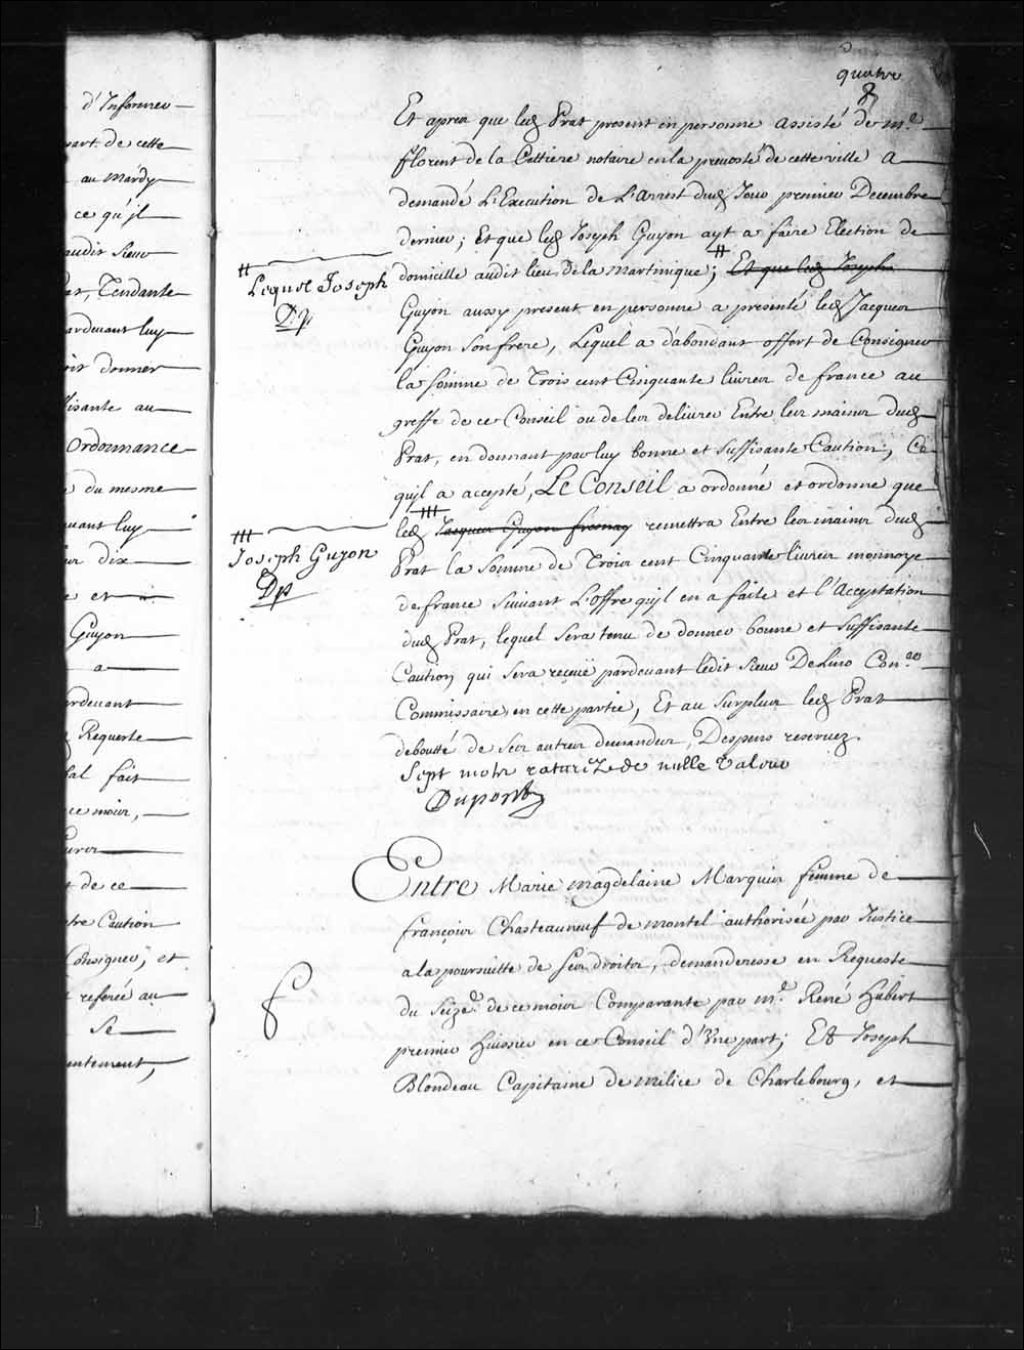 d'Informer
part de cette
au Mardy
ce qu'jl
audit Sieur
Tendante
pardevant luy
donner
au
Ordonnance
du mesme
luy
dix
et
Guyon
a
Requeste
fait
ce mois,
de ce
Caution
Consigner; et
referée au
Se
quatre
Et apres que led Prat present en personne assisté de Me
florent de la Cettiere notaire en la prevosté de cette ville a
demandé L'Execution de L'arrest dud Jour premier Decembre
dernier; Et que led Joseph Guyon ayt a faire Election de
domicille audit lieu de la martinique; # Et que led Joseph
# Lequel Joseph
Dp
Guyon aussy present en personne a presenté led Jacques
Guyon son frere, Lequel a d'abondant offert de Consigner
la somme de Trois cent Cinquante livres de france au
greffe de ce Conseil ou de les delivrer Entre les mains dud
Prat, en donnant par luy bonne et suffisante Caution; Ce
qu'jl a accepté, Le Conseil a ordonné et ordonne que
led Jacques Guyon fresnay remettra Entre les mains dud
Joseph Guyon
Dp
Prat la somme de Trois cent Cinquante livres monnoye
de france suivant L'offre qu'jl en a faite et l'Acceptation
dud Prat, lequel sera tenu de donner bonne et suffisante
Caution qui sera reçuë pardevant ledit Sieur De Lino Coner
Commissaire en cette partie, Et au surplus led Prat
deboutté de ses autres demandes, Despens reservez.
Sept mots raturéz de nulle valeur
Dupont
Entre Marie magdelaine Marquis femme de
françois Chasteauneuf de montel authorisée par Justice
a la poursuitte de ses droits, demanderesse en Requeste
du Seize de ce mois Comparante par Me René hubert
premier huissier en ce Conseil d'Une part; Et Joseph
Blondeau Capitaine de milice de Charlebourg, et